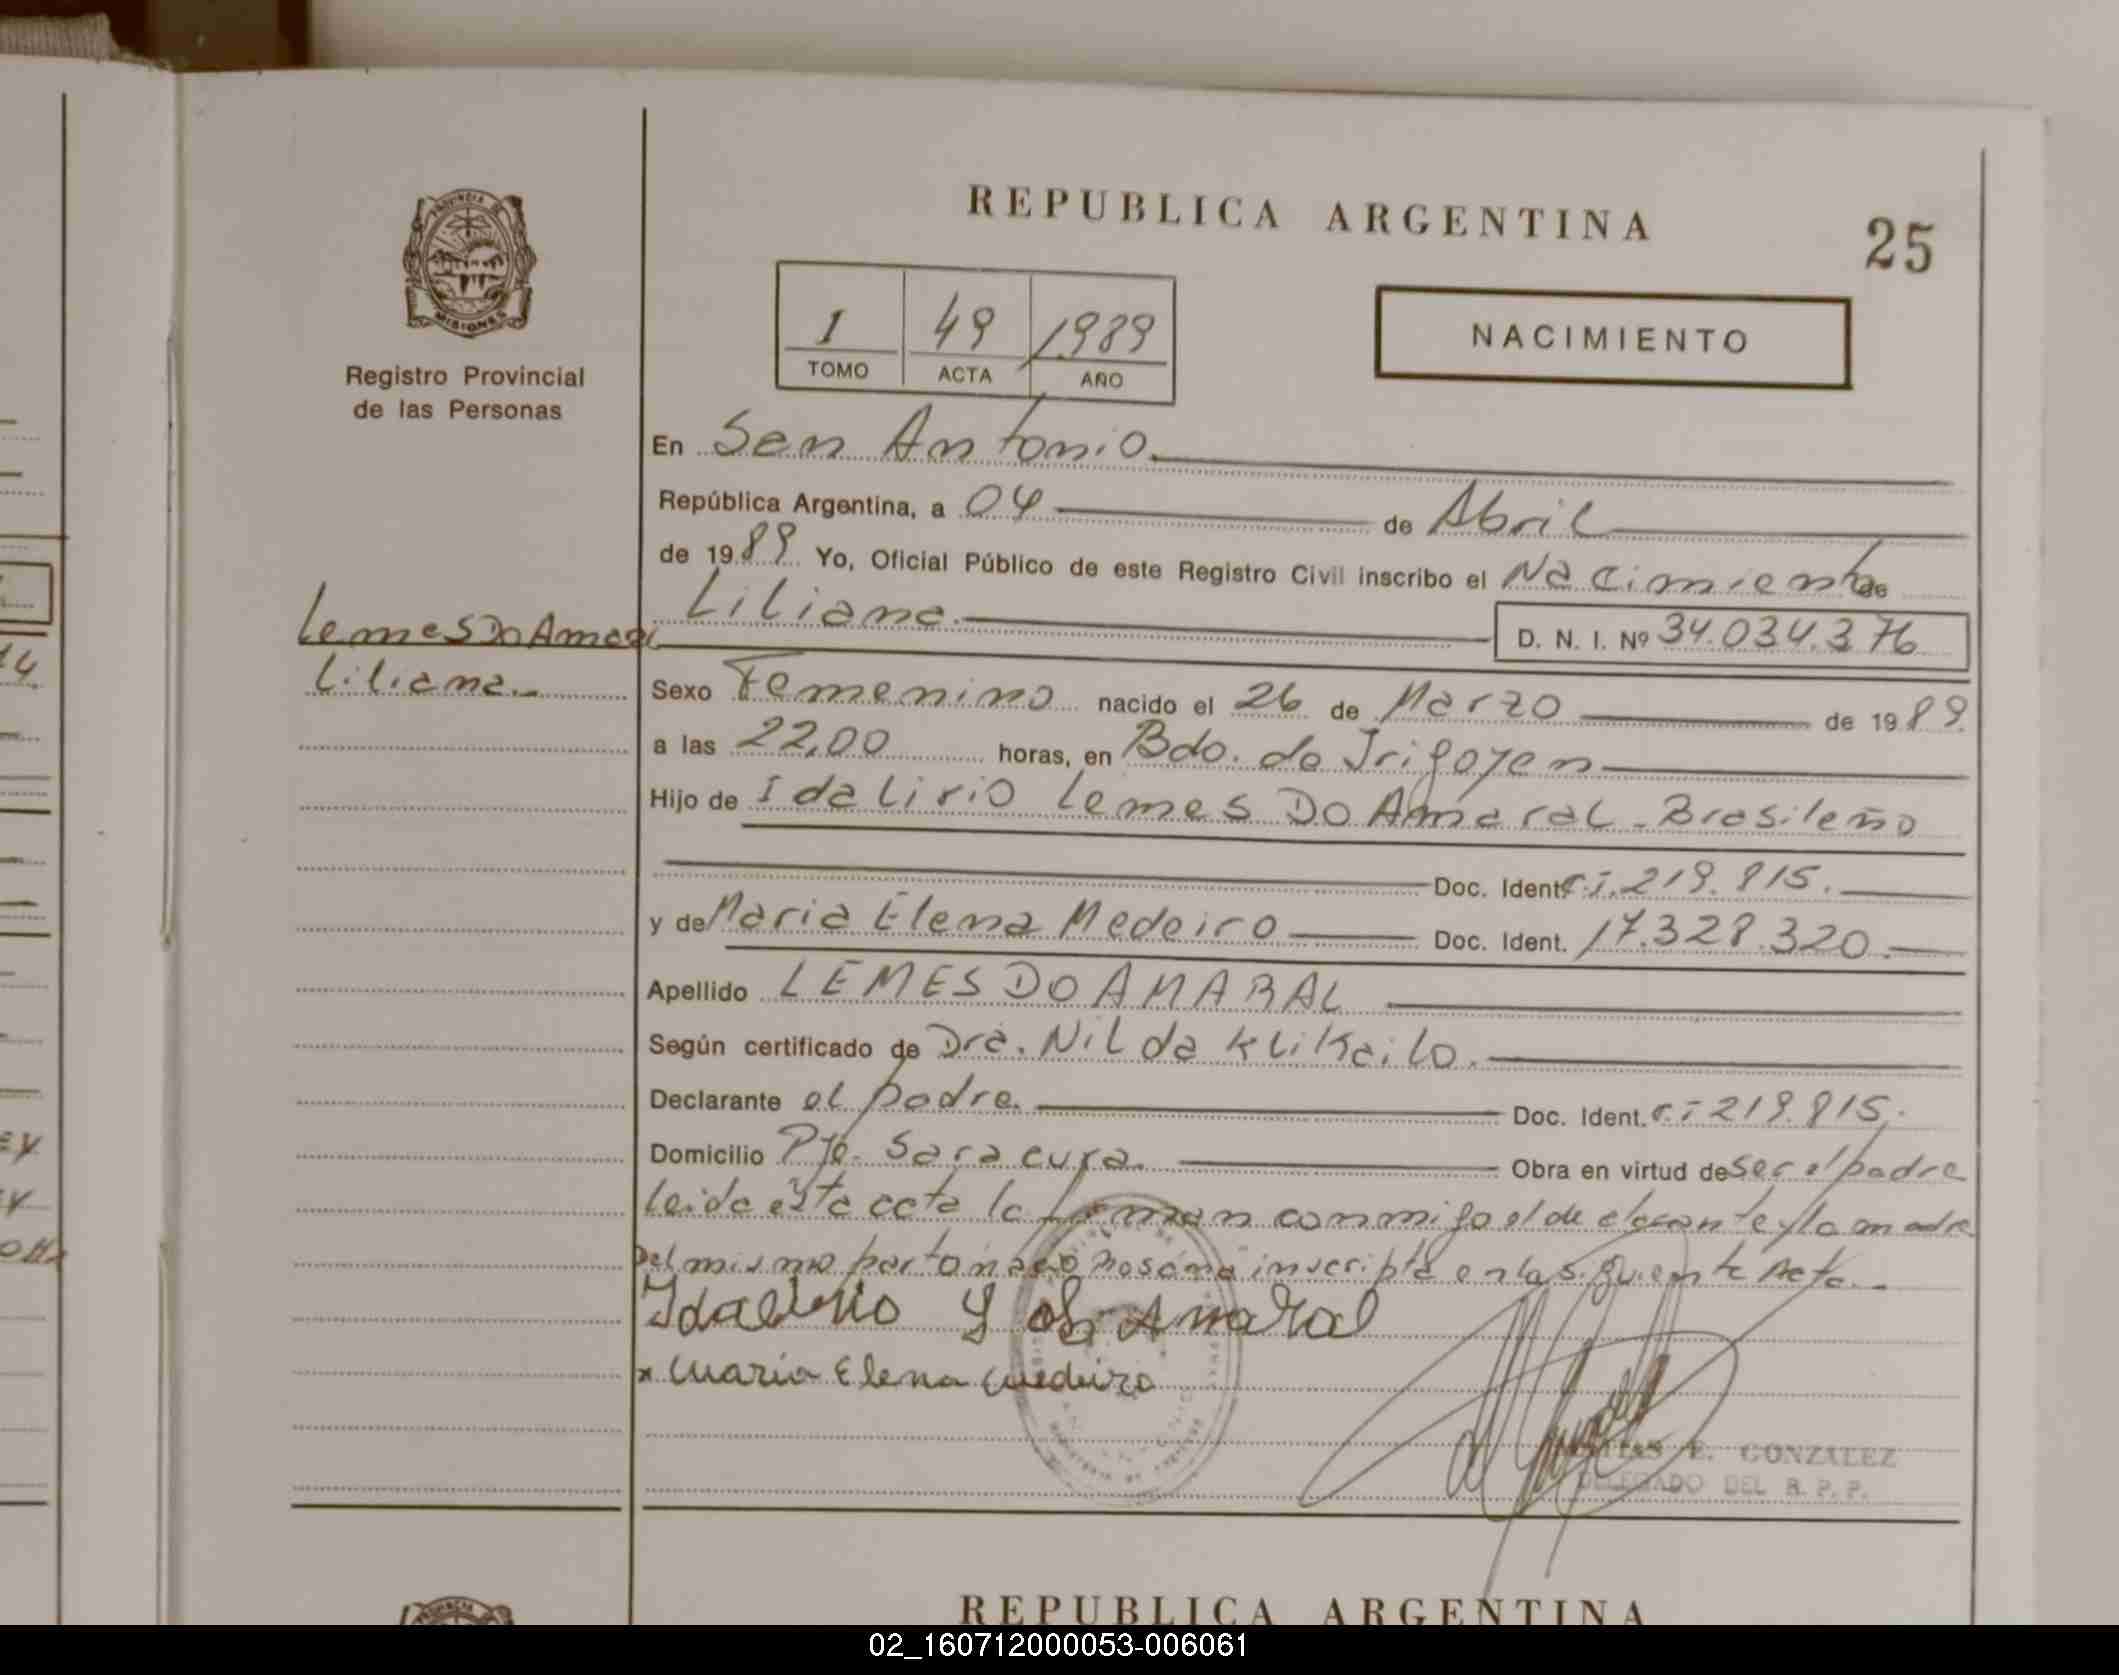 REPUBLICA ARGENTINA
25
PROVINCIA DE
MISIONES
Registro Provincial
de las Personas
1 49 1989
TOMO ACTA AÑO
NACIMIENTO
En San Antonio.
República Argentina, a 04 de Abril
de 1989 Yo, Oficial Público de este Registro Civil inscribo el Nacimiento de
Liliana. D. N. I. Nº 34.034.376
Lemes Do Amaral
Liliana.
Sexo Femenino nacido el 26 de Marzo de 1989.
a las 22,00 horas, en Bdo. de Irigoyen
Hijo de Idalirio Lemes Do Amaral - Brasileño
Doc. Ident. r.i. 219.815.
y de Maria Elena Medeiro Doc. Ident. 17.328.320.
Apellido LEMES DO AMARAL
Según certificado de Dra. Nilda Klikailo.
Declarante el padre. Doc. Ident. r.i 219.815.
Domicilio Pje. Saracura. Obra en virtud de ser el padre
leida esta acta la firman conmigo el declarante y la madre
Del mismo parto nacio Rosana inscripta en la siguiente Acta.
Idalirio Amaral
x Maria Elena Medeiro
E. GONZALEZ
DELEGADO DEL R. P. P.
REPUBLICA ARGENTINA
02_160712000053-006061